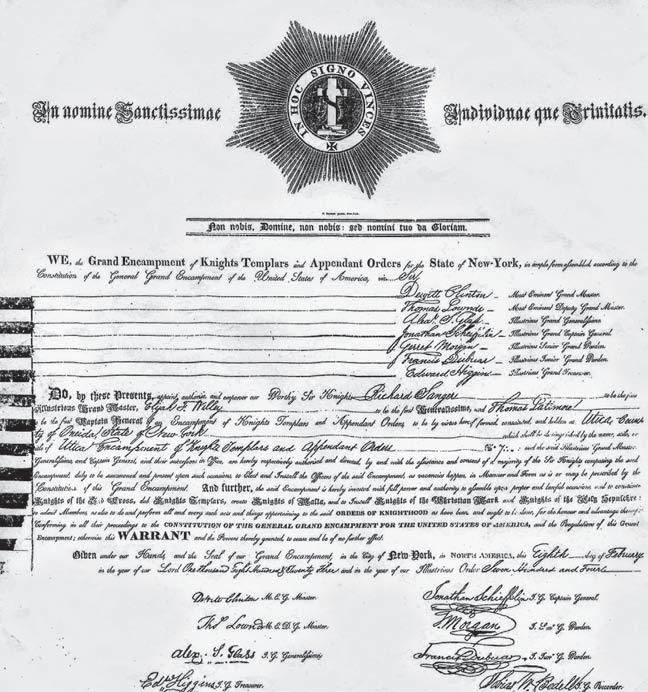 IN HOC SIGNO VINCES
In nomine Sanctissimae Individuae que Trinitatis.
Non nobis, Domine, non nobis: sed nomini tuo da Gloriam.
WE, the Grand Encampment of Knights Templars and Appendant Orders for the State of New-York, in ample form assembled, according to the
Constitution of the General Grand Encampment of the United States of America, viz. Sir,
Dewitt Clinton - Most Eminent Grand Master.
Thomas Lownds - Most Eminent Deputy Grand Master.
Illustrious Grand Generalissimo.
Jonathan Schieffelin - Illustrious Grand Captain General.
Garret Morgan - Illustrious Senior Grand Warden.
Francis Dubuar - Illustrious Junior Grand Warden.
Edward Higgins - Illustrious Grand Treasurer.
DO, by these Presents, appoint, authorize and empower our Worthy Sir Knights Richard Sanger to be the first
Illustrious Grand Master, Willey to be the first Generalissimo, and Thomas Latimore
to be the first Captain General of an Encampment of Knights Templars and Appendant Orders, to be by virtue hereof formed, constituted, and holden at Utica County
ty of Oneida State of New York which shall be distinguished by the name, style, or
of Utica Encampment of Knights Templars and Appendant Orders No. 7: and the said Illustrious Grand Master
Generalissimo and Captain General, and their successors in Office, are hereby respectively authorized and directed, by and with the assistance and consent of a majority of the Sir Knights composing the said
Encampment duly to be summoned and present upon such occasions to Elect and Install the Officers of the said Encampment, as vacancies happen, in Manner and Form as is or may be prescribed by the
Constitution of this Grand Encampment. And further, the said Encampment is hereby invested with full power and authority to assemble upon proper and lawful occasions and to constitute
Knights of the Red Cross, dub Knights Templars, and Knights of Malta, and to Install Knights of the Christian Mark and Knights of the Holy Sepulchre:
to admit Members, as also to do and perform all and every such acts and things appertaining to the said ORDERS OF KNIGHTHOOD as have been and ought to be done, for the honour and advantage thereof:
Conforming in all their proceedings to the CONSTITUTION OF THE GENERAL GRAND ENCAMPMENT FOR THE UNITED STATES OF AMERICA, and the Regulations of this Grand
Encampment; otherwise this WARRANT and the Powers thereby granted to cease and be of no further effect.
Given under our Hands, and the Seal of our Grand Encampment, in the City of New-York, in NORTH AMERICA, this Eighth day of February
in the year of our Lord One Thousand Eight Hundred & Twenty Three and in the year of our Illustrious Order Seven Hundred and Four
DeWitt Clinton M.E.G. Master. Jonathan Schieffelin I.G. Captain General.
Thos Lownds M.E.D.G. Master. G. Morgan I. Sen. G. Warden.
Alex. S. Glass I.G. Generalissimo. Francis Dubuar I. Jun. G. Warden.
Edw Higgins I.G. Treasurer. W. Bedell I.G. Recorder.